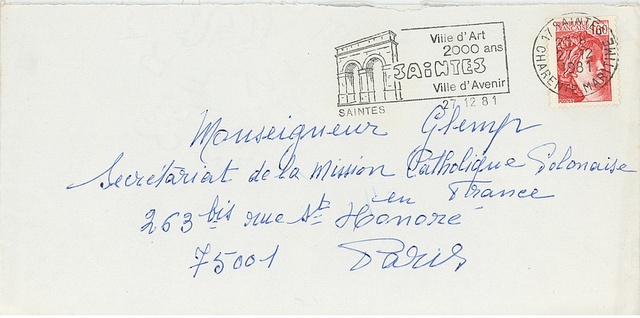 Ville d'Art
2000 ans
SAINTES
Ville d'Avenir
SAINTES
27 12 81
17 SAINTES
1981
CHARENTE MARITIME
1,60
Monseigneur Glemp
Secrétariat de la Mission Catholique Polonaise
en France
263 bis rue St Honoré
75001 Paris